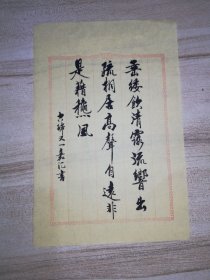 垂緌飲清露流響出
疏桐居高聲自遠非
是藉穐風
書